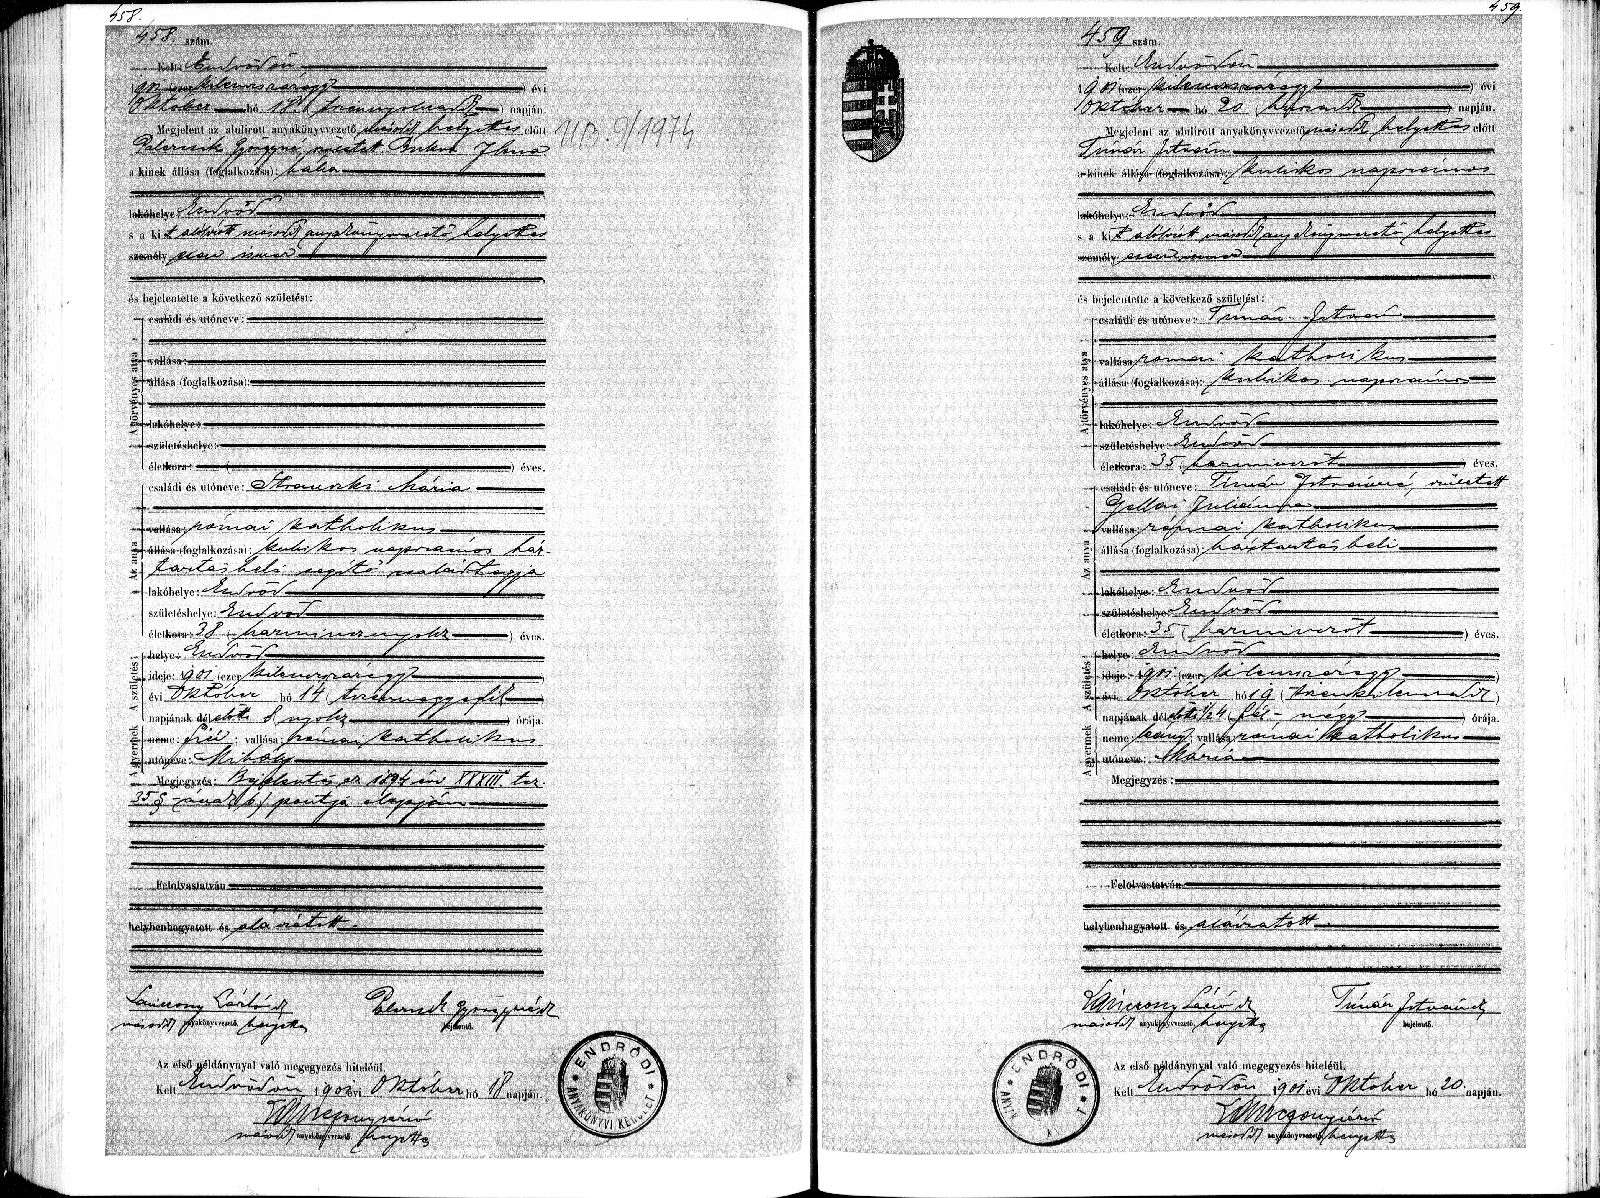 458.
458. szám.
Kelt: Endrődön
1901 (ezer kilenczszázegy) évi
Október hó 18. (tizennyolczadik) napján
Megjelent az alulirott anyakönyvvezető másod helyettes előtt
Gyrgyné, született Ilona
a kinek állása (foglalkozása): bába
lakóhelye Endrőd
s a kit alólirott másod anyakönyvvezető helyettes
személy nem ismer
és bejelentette a következő születést:
A törvényes atya
családi és utóneve:
vallása:
állása (foglalkozása):
lakóhelye:
születéshelye:
életkora: ( ) éves.
Az anya
családi és utóneve: Mária
vallása: római katholikus
állása (foglalkozása): kubikos napszámos ház-
tartásbeli segitő családtagja
lakóhelye: Endrőd
születéshelye: Endrőd
életkora: 38 (harmincznyolcz) éves.
A születés
helye: Endrőd
ideje: 1901 (ezer kilenczszázegy)
évi Október hó 14 (tizennegyedik)
napjának délelőtti 8 nyolcz órája.
A gyermek
neme: fiú; vallása: római katholikus
utóneve: Mihály
Megjegyzés: Bejelentés az 1894 évi XXXIII. tcz.
35 § b) pontja alapján
Felolvastatván
helybenhagyatott és aláiratott.
másod anyakönyvvezető helyettes
bejelentő.
Az első példánynyal való megegyezés hiteléül.
Kelt Endrődön 1901 évi Október hó 18 napján.
másod anyakönyvvezető helyettes
ENDRŐDI ANYAKÖNYVI KERÜLET
9/1974
459
459 szám.
Kelt: Endrődön
1901 (ezer kilenczszázegy) évi
Október hó 20 (huszadik) napján.
Megjelent az alulirott anyakönyvvezető másod helyettes előtt
Timár István
a kinek állása (foglalkozása): kubikos napszámos
lakóhelye: Endrőd
s a kit alólirott másod anyakönyvvezető helyettes
személy
és bejelentette a következő születést:
A törvényes atya
családi és utóneve: Timár István
vallása: római katholikus
állása (foglalkozása): kubikos napszámos
lakóhelye: Endrőd
születéshelye: Endrőd
életkora: 35 (harminczöt) éves.
Az anya
családi és utóneve: Timár Istvánné, született
Gellai Juliánna
vallása: római katholikus
állása (foglalkozása) háztartásbeli
lakóhelye: Endrőd
születéshelye: Endrőd
életkora: 35 (harminczöt) éves.
A születés
helye: Endrőd
ideje: 1901 (ezer kilenczszázegy)
évi Október hó 19 (tizenkilenczedik)
napjának délelőtti 1/2 4 (fél-négy) órája.
A gyermek
neme: leány; vallása: római katholikus
utóneve: Mária
Megjegyzés:
Felolvastatván
helybenhagyatott és aláiratott
másod anyakönyvvezető, helyettes
Timár István
bejelentő.
Az első példánynyal való megegyezés hiteléül.
Kelt Endrődön 1901 évi Október hó 20. napján.
másod anyakönyvvezető helyettes
ENDRŐDI